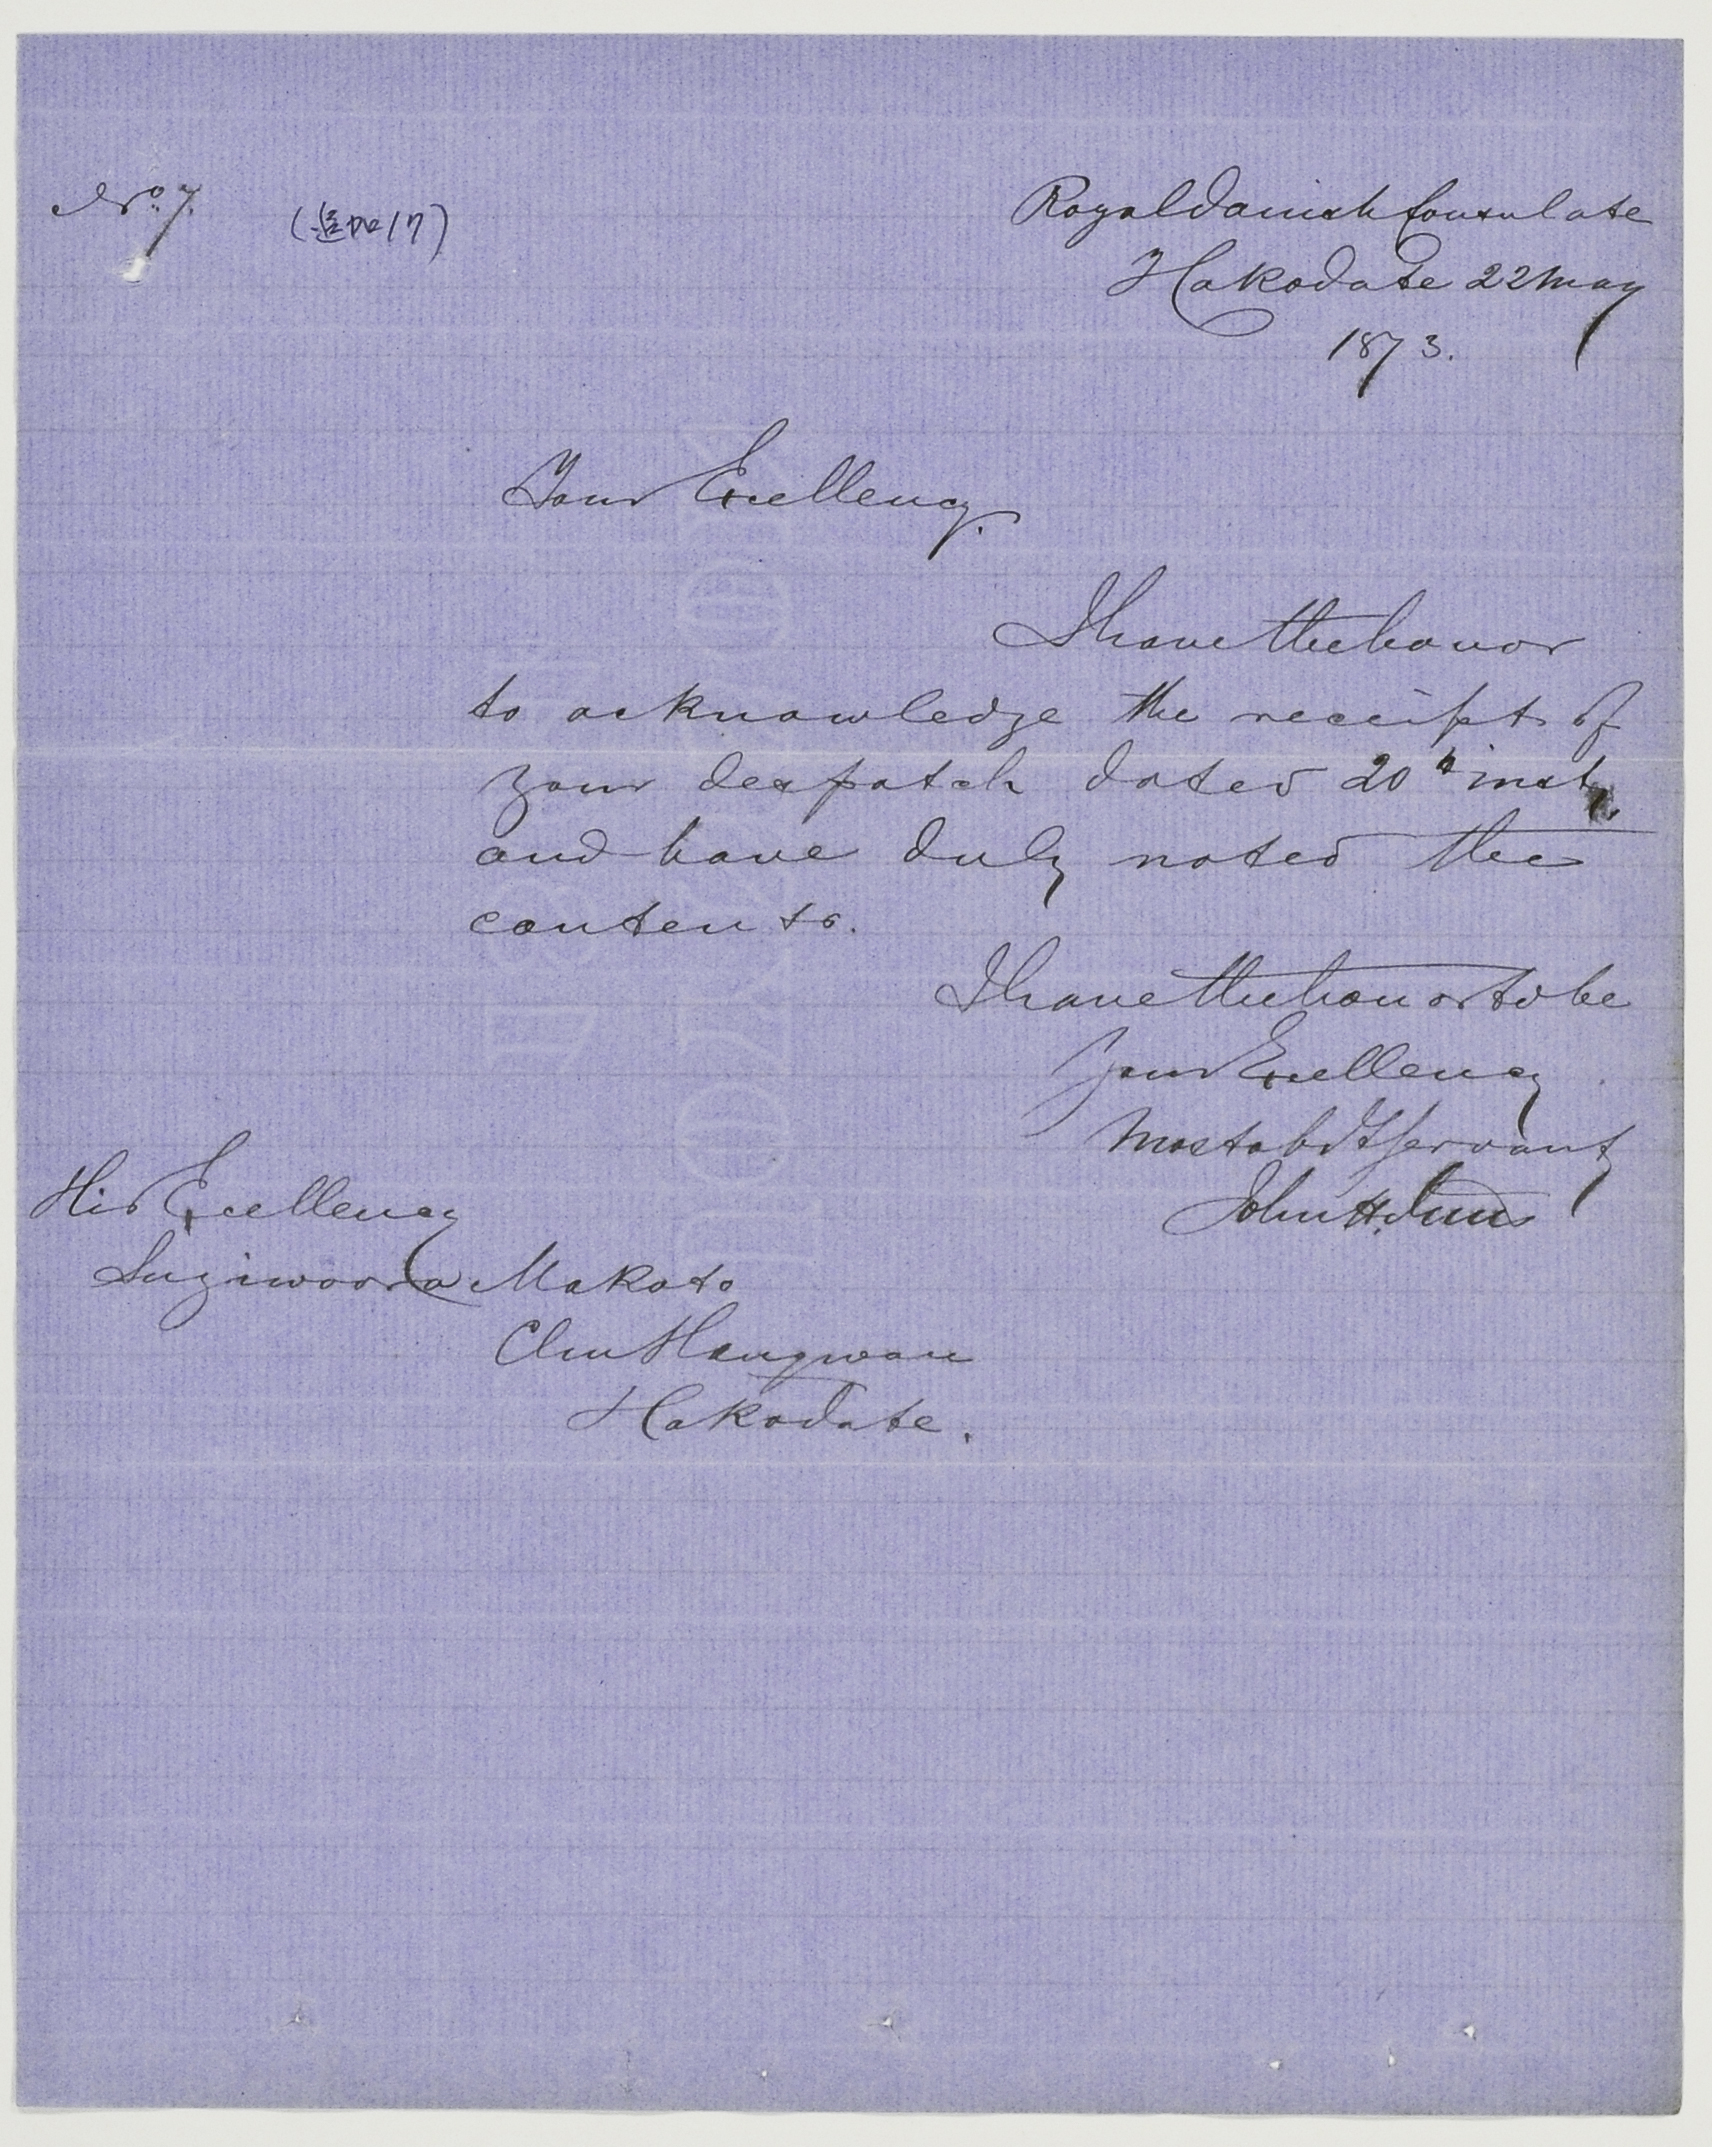 No. 7. (追加17)
Royal Danish Consulate
Hakodate 22 May
1873.
Your Excellency.
I have the honor
to acknowledge the receipt of
your despatch dated 20th inst,
and have duly noted the
contents.
I have the honor to be
Your Excellency
most obdt servant
John H. Duus
His Excellency
Sugiwoora Makoto
Chu Hangwan
Hakodate.